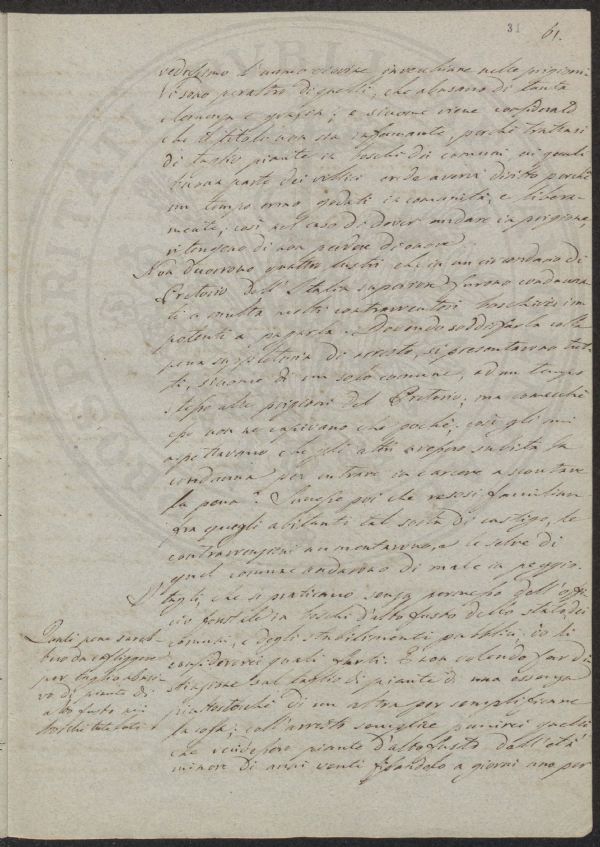 31 61.
vedessimo l'uomo dabbene invecchiare nelle prigioni.
Vi sono peraltro di quelli, che abusano di tanta
clemenza e grazia; e siccome viene considerato
che il titolo non sia infamante, perché trattasi
di taglio piante in boschi dei comuni sui quali
buona parte dei villici crede avervi diritto perché
un tempo erano goduti in comunità, e libera-
mente, così nel caso di dover andare in prigione,
ritengono di non perdere di onore.
Non ducorrono quattro lustri che in un circondario di
Pretorio dell'Italia superiore furono condanna-
ti a multa molti contravventori boschivi im
potenti a pagarla. Dovendo soddisfarla colla
pena suppletoria di arresto, si presentarono tut-
ti, siccome di un solo comune, ad un tempo
stesso alle prigioni del Pretorio; ma conecché
esse non ne capivano che pochi, così gli uni
aspettavano che gli altri avessero subita la
condanna per entrare in carcere a scontare
la pena. Successe poi che resosi famigliare
fra quegli abitanti tal sorta di castigo, le
contravvenzioni aumentarono, e le selve di
quel comune andarono di male in peggio.
tagli, che si praticano senza permesso dell'offi
cio forestale in boschi d'alto fusto dello stato dei
comuni, e degli stabilimenti pubblici, io li
considererei quali furti. E non volendo far di
stinzione sul taglio di piante di una essenza
piuttostoché di un altra per semplificare
la cosa; coll'arresto semplice punirei quelli
che recidessero piante d'alto fusto dell'età
minore di anni venti fissandolo a giorni uno per
Quali pene sareb-
bero da infliggere
per taglio abusi-
vo di piante di
alto fusto nei
boschi tutelati